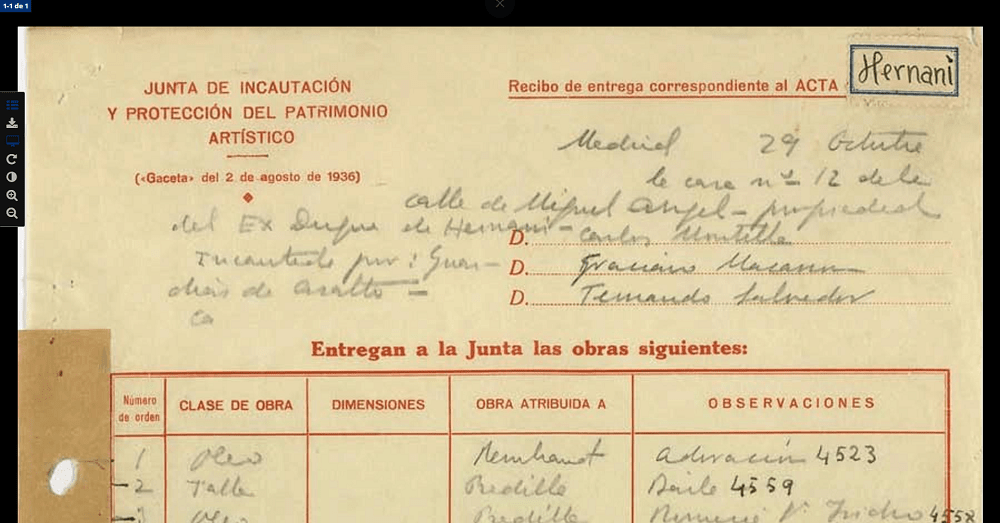 1-1 de 1
Hernani
JUNTA DE INCAUTACIÓN
Y PROTECCIÓN DEL PATRIMONIO
ARTÍSTICO
(«Gaceta» del 2 de agosto de 1936)
Recibo de entrega correspondiente al ACTA
Madrid 29 Octubre
la casa nº 12 de la
calle de Miguel Angel - propiedad
del Ex Duque de Hernani -
Incautado por: Guar-
dias de asalto -
Ca
D. Carlos Montilla
D. Graciano Macarron
D. Fernando Salvador
Entregan a la Junta las obras siguientes:
Número de orden CLASE DE OBRA DIMENSIONES OBRA ATRIBUIDA A OBSERVACIONES
1 Oleo Rembrandt Adoración 4523
2 Talla Baile 4559
3 Oleo 4558